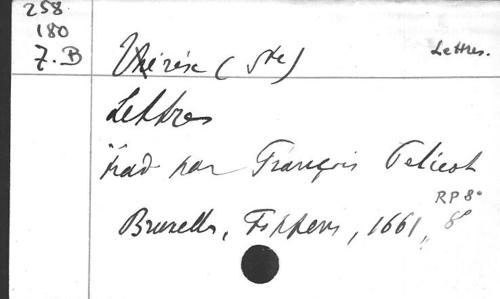 258.
180
7.B
Thérèse (Ste)
Lettres.
Lettres
trad par François Pelicot
RP 8°
Bruxelles, Foppens, 1661, 8°